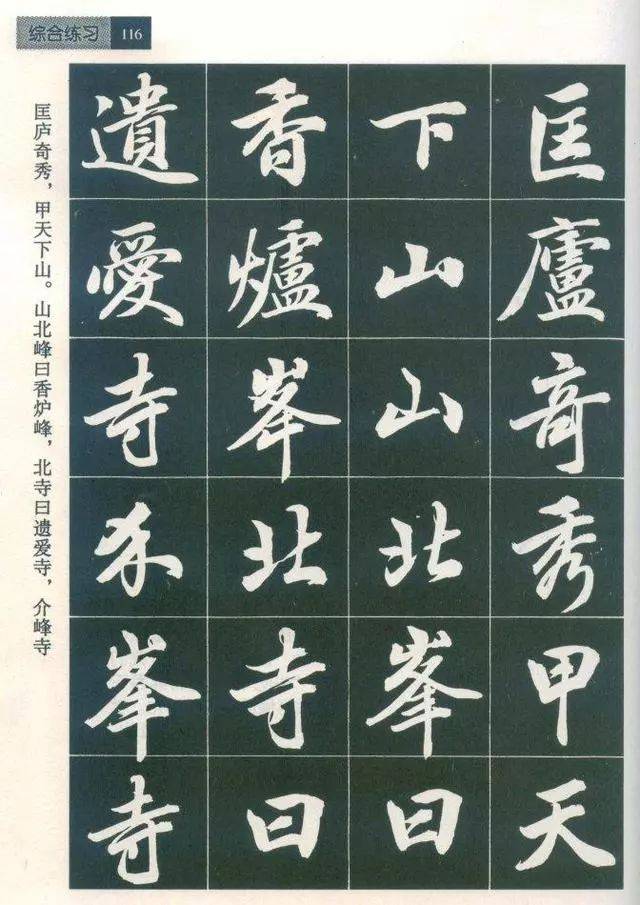 综合练习 116
匡廬竒秀甲天
下山山北峯曰
香爐峯北寺曰
遺愛寺介峯寺
匡庐奇秀，甲天下山。山北峰曰香炉峰，北寺曰遗爱寺，介峰寺